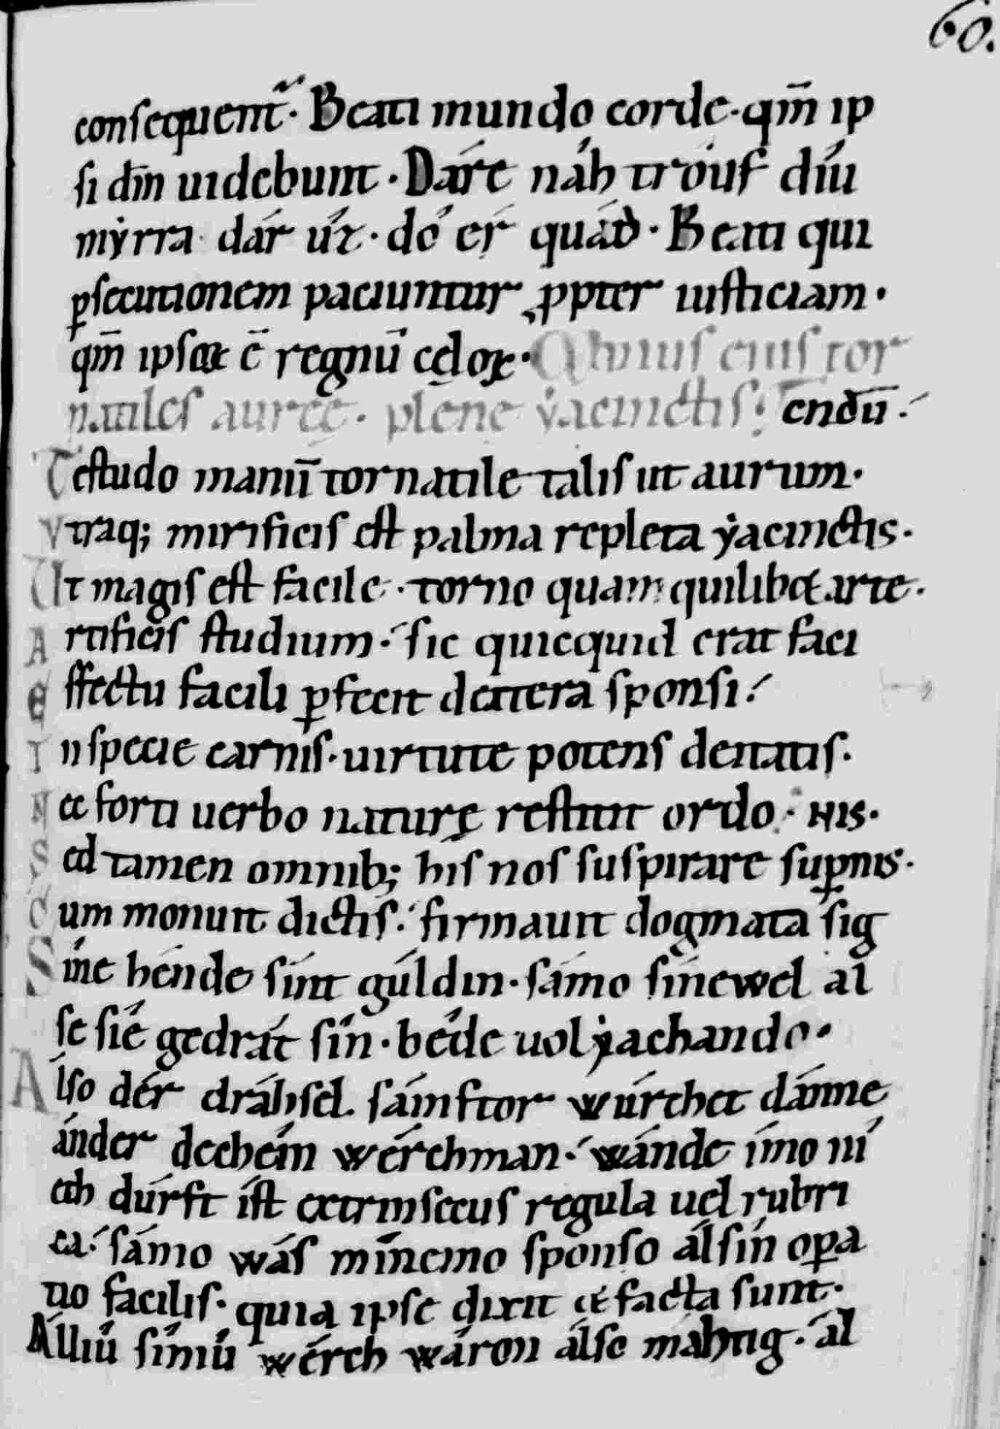 60.
consequent᷑. Beati mundo corde. qm̄ ip
si dm̄ uidebunt. Dáre náh tróuf díu
mẏrra dár úz. dé ér quáđ. Beati qui
ꝑsecutionem paciuntur ꝓpter iusticiam.
qm̄ ipsoꝝ ē regnū cęloꝝ. Manus eius tor
natiles auree. plene ẏacinctis. endū.
Testudo manuū tornatile talis ut aurum.
Vtraq; mirificis est palma repleta ẏacinctis.
Ut magis est facile. torno quam quilibet arte.
Artificis studium. sic quicquid erat faci
Effectu facili ꝑfecit dextera sponsi.
In specie carnis. uirtute potens deitatis.
Nec forti uerbo naturę restitit ordo. HIS.
Sed tamen omnib; his nos suspirare suꝑnis.
Cum monuit dictis. firmauit dogmata sig
Síne hénde sínt gúldin. sámo sínewel al
se síe gedrát sín. béde uol ẏachando.
Also dér dráhsel. sámftor wúrchet dánne
ánder dechéin wérchman. wánde ímo ni
eh dúrft íst extrinsecus regula uel rubri
ca. sámo wás mínemo sponso álsin oꝑa
tio facilis. quia ipse dixit et facta sunt.
Alliú símiú wérch wáron álse mahtig. ál